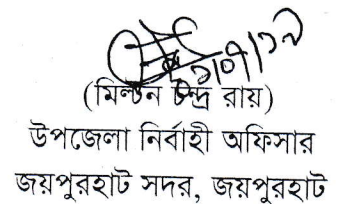 (মিল্টন চন্দ্র রায়)
উপজেলা নির্বাহী অফিসার
জয়পুরহাট সদর, জয়পুরহাট